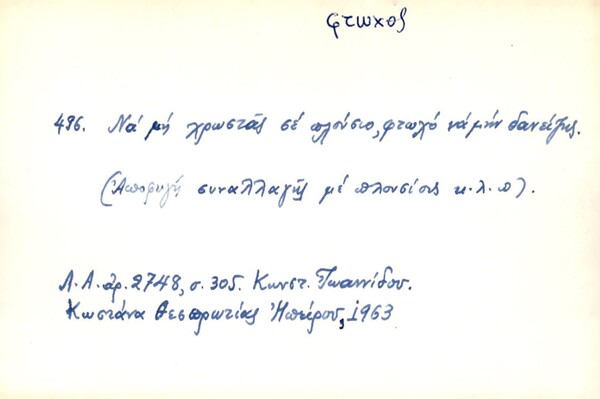 φτωχός
496. Νά μή χρωστᾶς σέ πλούσιο, φτωχό νά μήν δανείζης.
(Ἀποφυγή συναλλαγῆς μέ πλουσίους κ.λ.π).
Λ.Α. ἀρ. 2748, σ. 305. Κωνστ. Ἰωαννίδου.
Κωστάνα Θεσπρωτίας Ἠπείρου, 1963